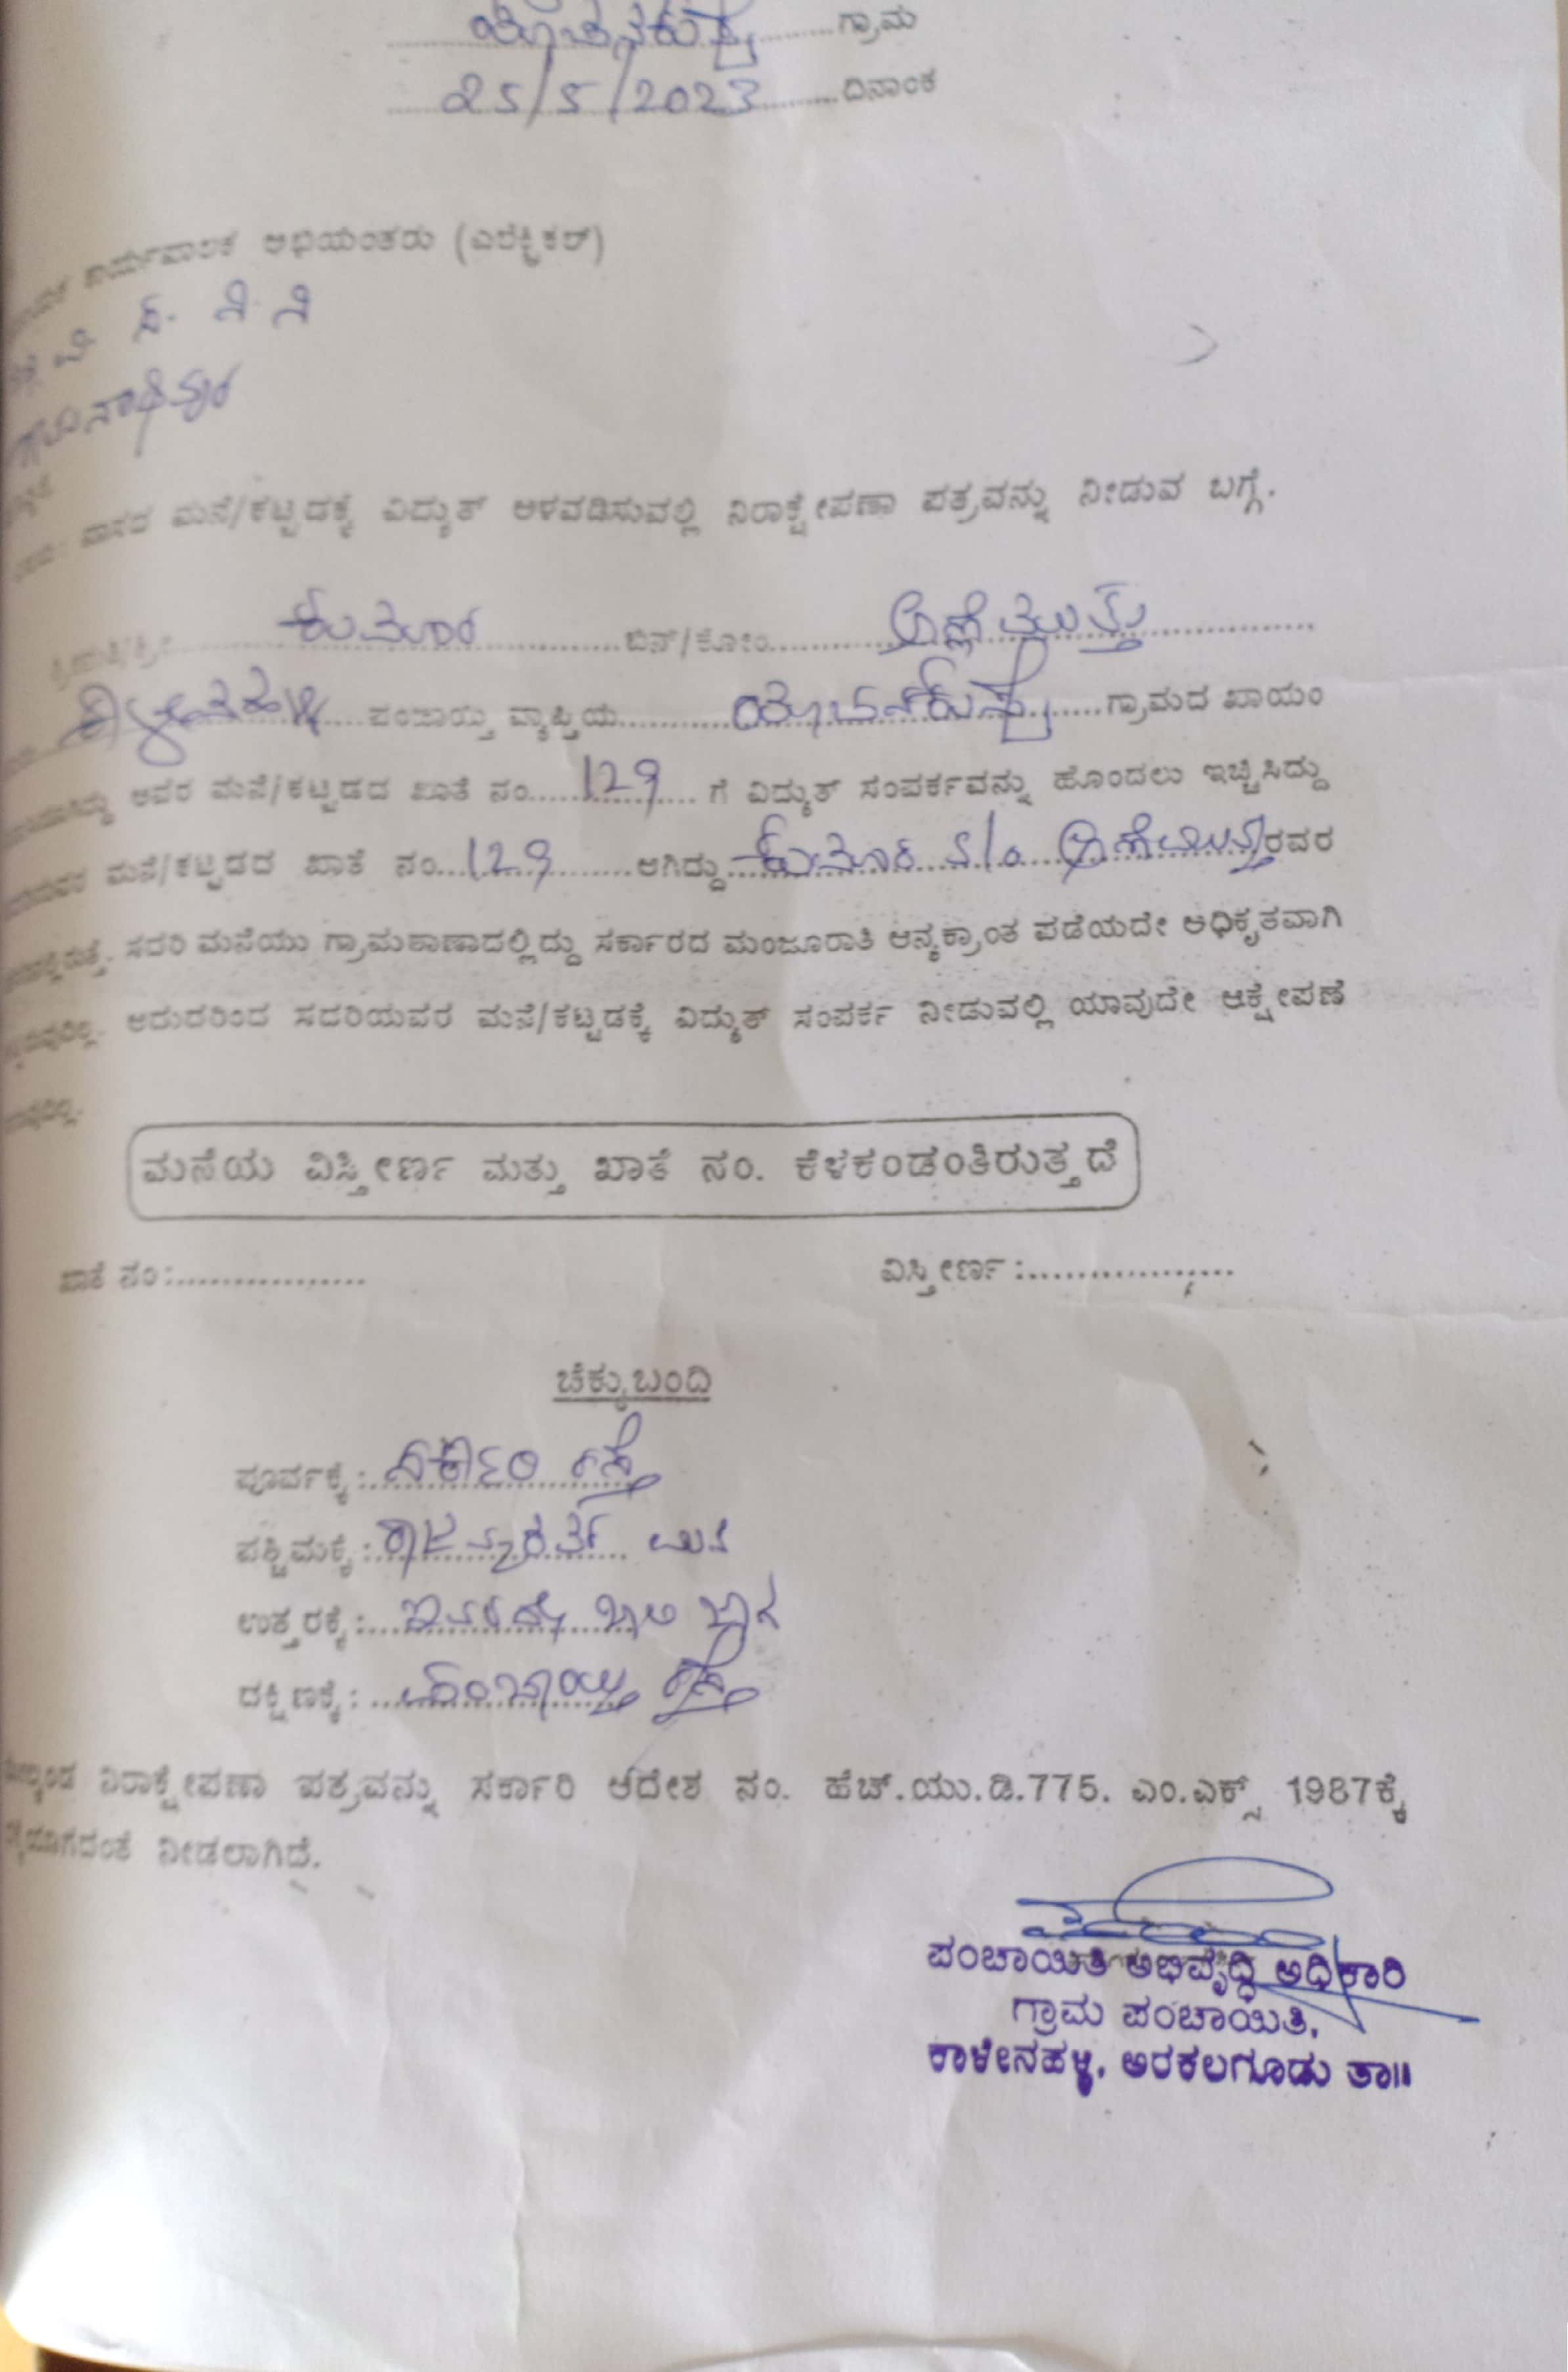 ಗ್ರಾಮ
25/5/2023 ದಿನಾಂಕ
ಕಾರ್ಯಪಾಲಕ ಅಭಿಯಂತರು (ಎಲೆಕ್ಟ್ರಿಕಲ್)
ವಾಸದ ಮನೆ/ಕಟ್ಟಡಕ್ಕೆ ವಿದ್ಯುತ್ ಅಳವಡಿಸುವಲ್ಲಿ ನಿರಾಕ್ಷೇಪಣಾ ಪತ್ರವನ್ನು ನೀಡುವ ಬಗ್ಗೆ.
ಕುಮಾರ ಬಿನ್/ಕೋಂ
ಪಂಚಾಯ್ತಿ ವ್ಯಾಪ್ತಿಯ ಗ್ರಾಮದ ಖಾಯಂ
ಅವರ ಮನೆ/ಕಟ್ಟಡದ ಖಾತೆ ನಂ 129 ಗೆ ವಿದ್ಯುತ್ ಸಂಪರ್ಕವನ್ನು ಹೊಂದಲು ಇಚ್ಚಿಸಿದ್ದು
ಮನೆ/ಕಟ್ಟಡದ ಖಾತೆ ನಂ 129 ಆಗಿದ್ದು ಕುಮಾರ s/o ರವರ
ಸದರಿ ಮನೆಯು ಗ್ರಾಮಠಾಣಾದಲ್ಲಿದ್ದು ಸರ್ಕಾರದ ಮಂಜೂರಾತಿ ಅನ್ಯಕ್ರಾಂತ ಪಡೆಯದೇ ಅಧಿಕೃತವಾಗಿ
ಆದುದರಿಂದ ಸದರಿಯವರ ಮನೆ/ಕಟ್ಟಡಕ್ಕೆ ವಿದ್ಯುತ್ ಸಂಪರ್ಕ ನೀಡುವಲ್ಲಿ ಯಾವುದೇ ಆಕ್ಷೇಪಣೆ
ಮನೆಯ ವಿಸ್ತೀರ್ಣ ಮತ್ತು ಖಾತೆ ನಂ. ಕೆಳಕಂಡಂತಿರುತ್ತದೆ
ಖಾತೆ ನಂ:.................. ವಿಸ್ತೀರ್ಣ :...................
ಚೆಕ್ಕುಬಂದಿ
ಪೂರ್ವಕ್ಕೆ : ಸರ್ಕಾರಿ ರಸ್ತೆ
ಪಶ್ಚಿಮಕ್ಕೆ : ಮನೆ
ಉತ್ತರಕ್ಕೆ : ಖಾಲಿ ಜಾಗ
ದಕ್ಷಿಣಕ್ಕೆ : ಪಂಚಾಯ್ತಿ ರಸ್ತೆ
ನಿರಾಕ್ಷೇಪಣಾ ಪತ್ರವನ್ನು ಸರ್ಕಾರಿ ಆದೇಶ ನಂ. ಹೆಚ್.ಯು.ಡಿ.775. ಎಂ.ಎಕ್ಸ್ 1987ಕ್ಕೆ
ನೀಡಲಾಗಿದೆ.
ಪಂಚಾಯಿತಿ ಅಭಿವೃದ್ಧಿ ಅಧಿಕಾರಿ
ಗ್ರಾಮ ಪಂಚಾಯಿತಿ,
ಕಾಳೇನಹಳ್ಳಿ, ಅರಕಲಗೂಡು ತಾ॥